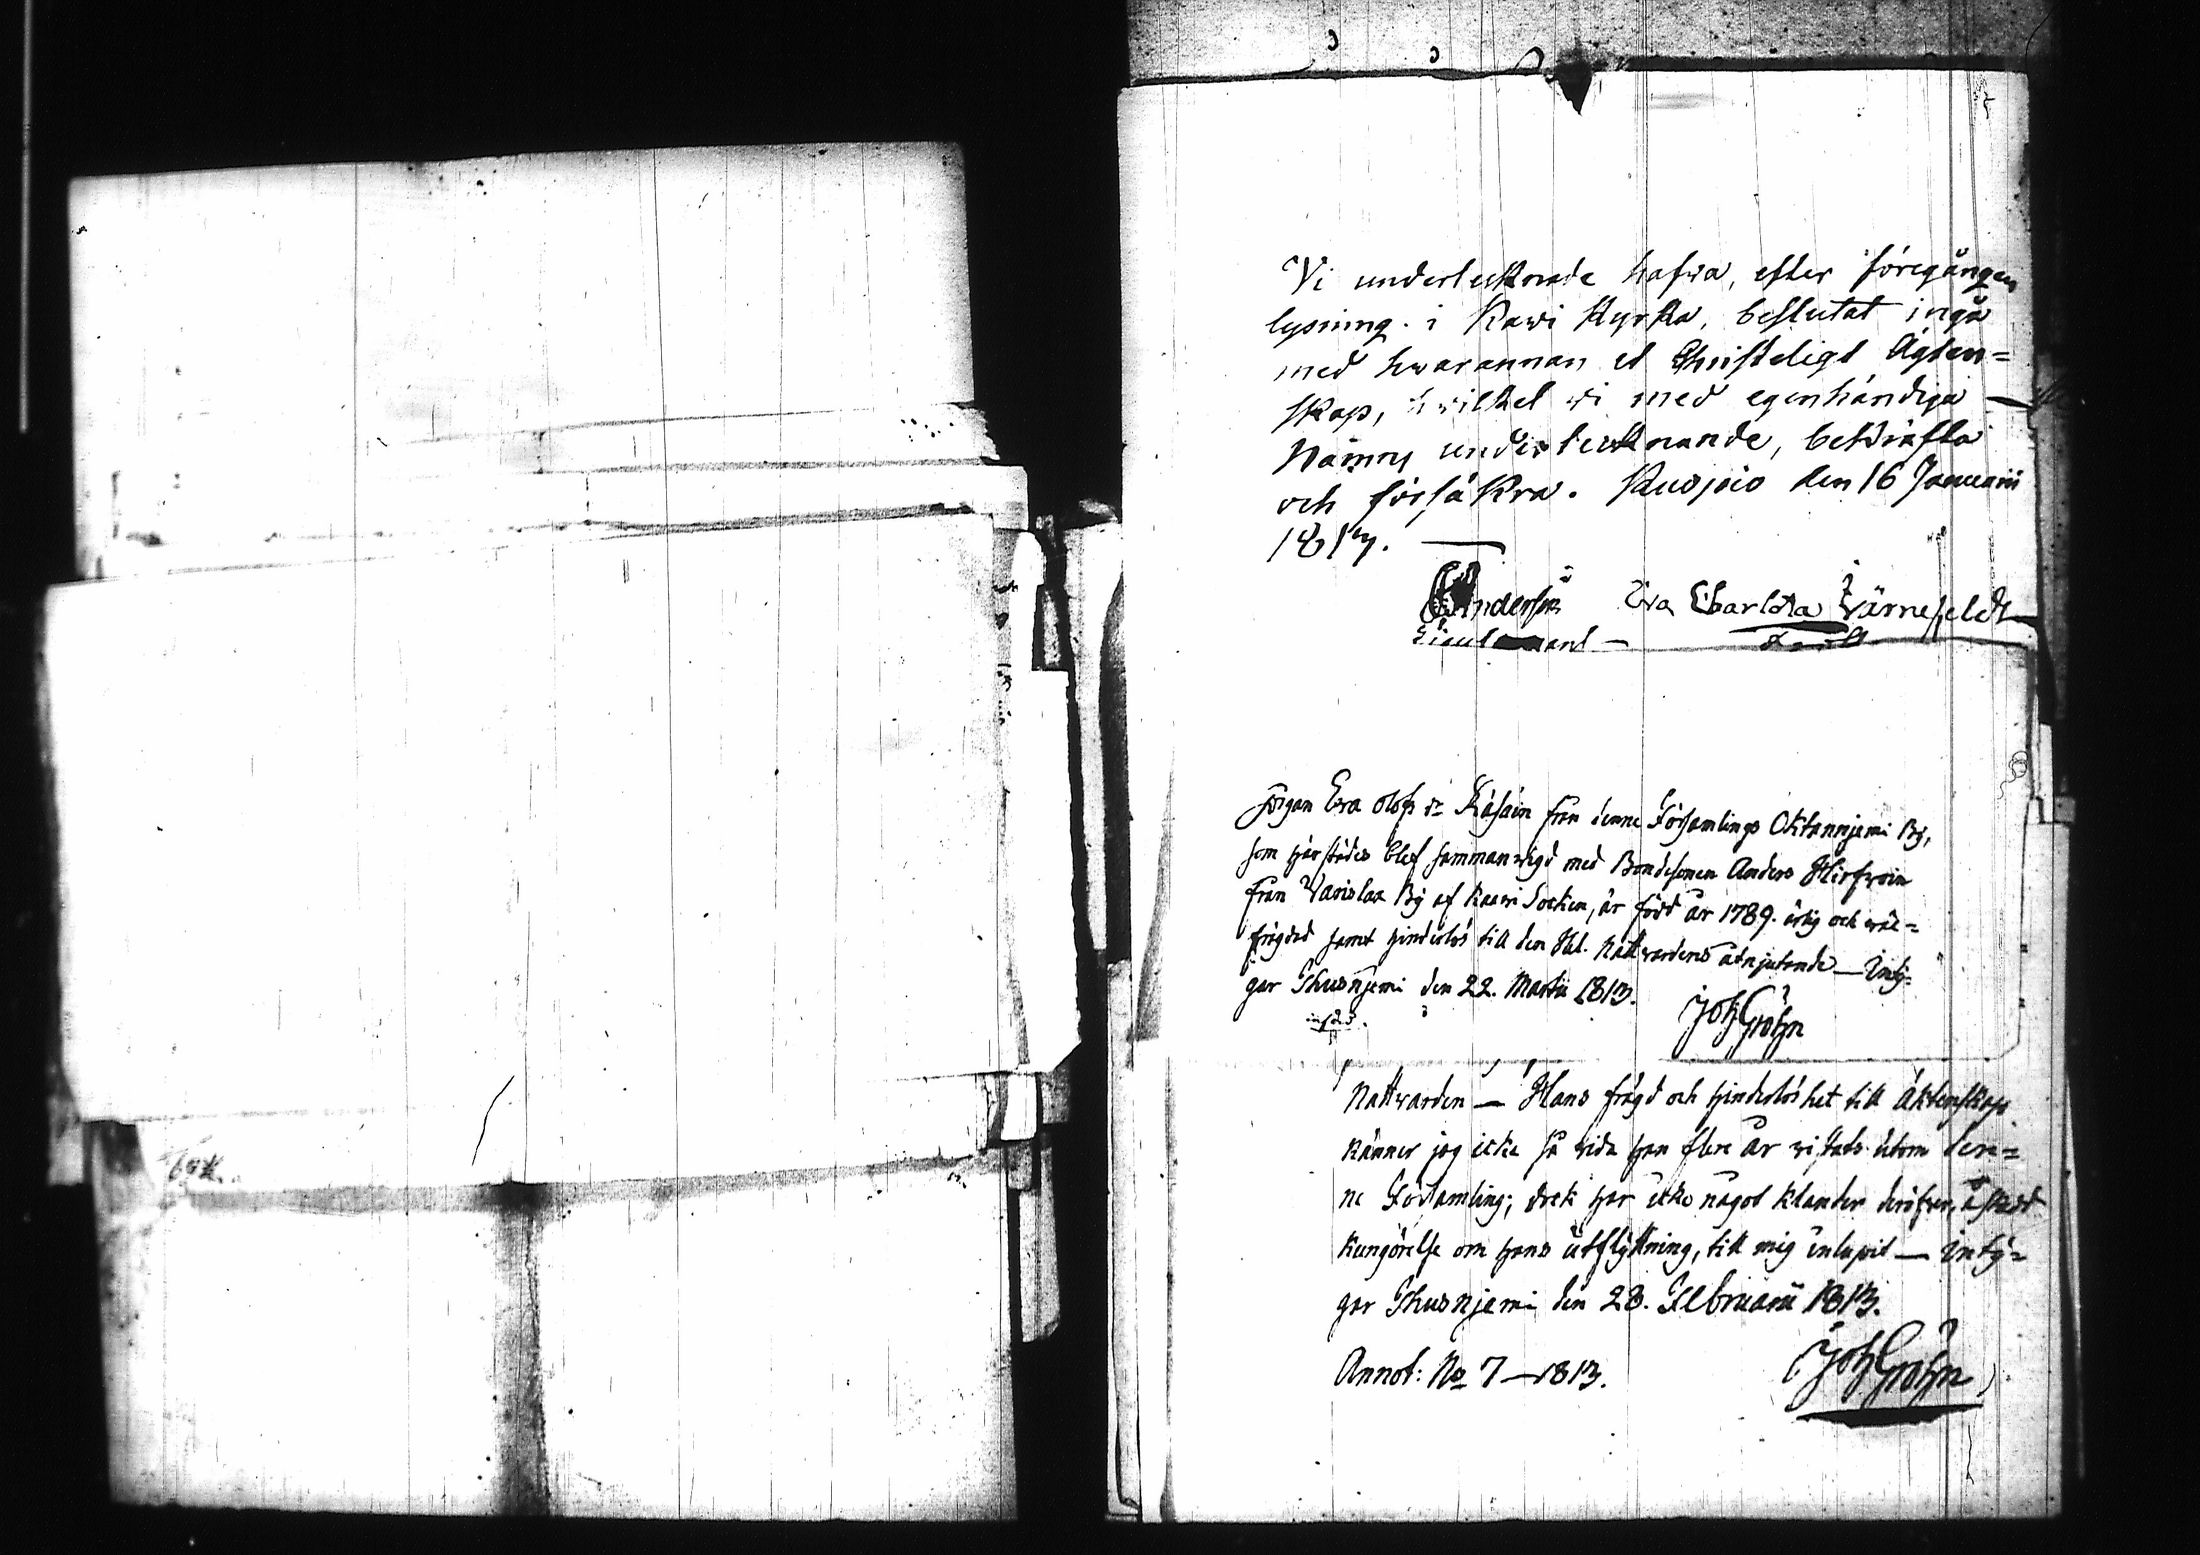 Vi undertecknade hafwa, efter föregången
lysning i Kawi Kyrka, beslutat ingå
med hwarannan et Christeligt Ägten=
skap, hwilket wi med egenhändiga
Namns undertecknande, bekräfta
och försäkra. Kuopio den 16 Januarii
1813.
Andersin Eva Charlotta Järnefeldt
Lieutenant
Pigan Ewa Olofs dr Räsäin från denne Församlings Oktannjemi By,
som härstädes blef sammanwigd med Bondesonen Anders Hirfwoin
från Warislax By af Kaawi Socken, är född år 1789. ärlig och wäl=
frägdad samt hinderlös till den Hel. Nattwardens åtnjutande — Inty=
gar Thusnjemi den 22. Martii 1813.
Joh Gröhn
Nattwarden — Hans frägd och hinderlöshet till Äktenskap
känner jag icke så wida han flere år wistats utom den=
ne Församling; dock har icke något klander deröfwer, å skedd
kungörelse om hans utflyttning, till mig inlupit — Inty=
gar Thusnjemi den 28. Februarii 1813.
Annot: No 7 — 1813.
Joh Gröhn